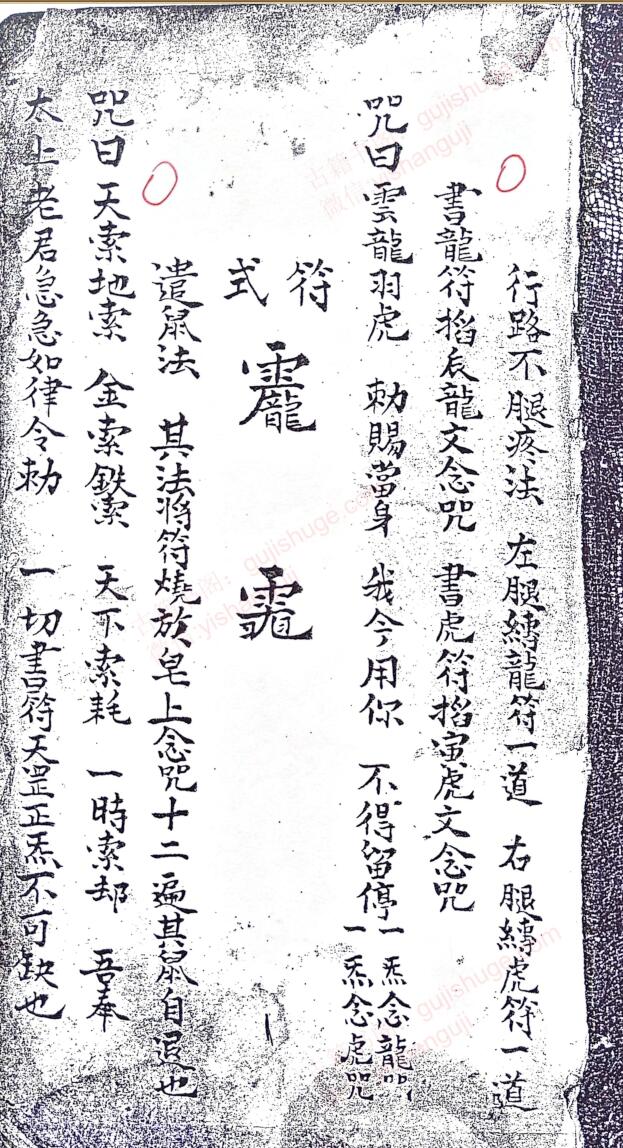 行路不腿疼法　左腿縛龍符一道　右腿縛虎符一道
書龍符掐辰龍文念咒　書虎符掐寅虎文念咒
咒曰　雲龍羽虎　勅賜當身　我今用你　不得留停　一炁念龍咒
一炁念虎咒
符式
遣鼠法　其法將符燒放皂上念咒十二遍其鼠自退也
咒曰　天索地索　金索鉄索　天下索耗　一時索却　吾奉
太上老君急急如律令勅　一切書符天罡正炁不可缺也
gujishuge.com